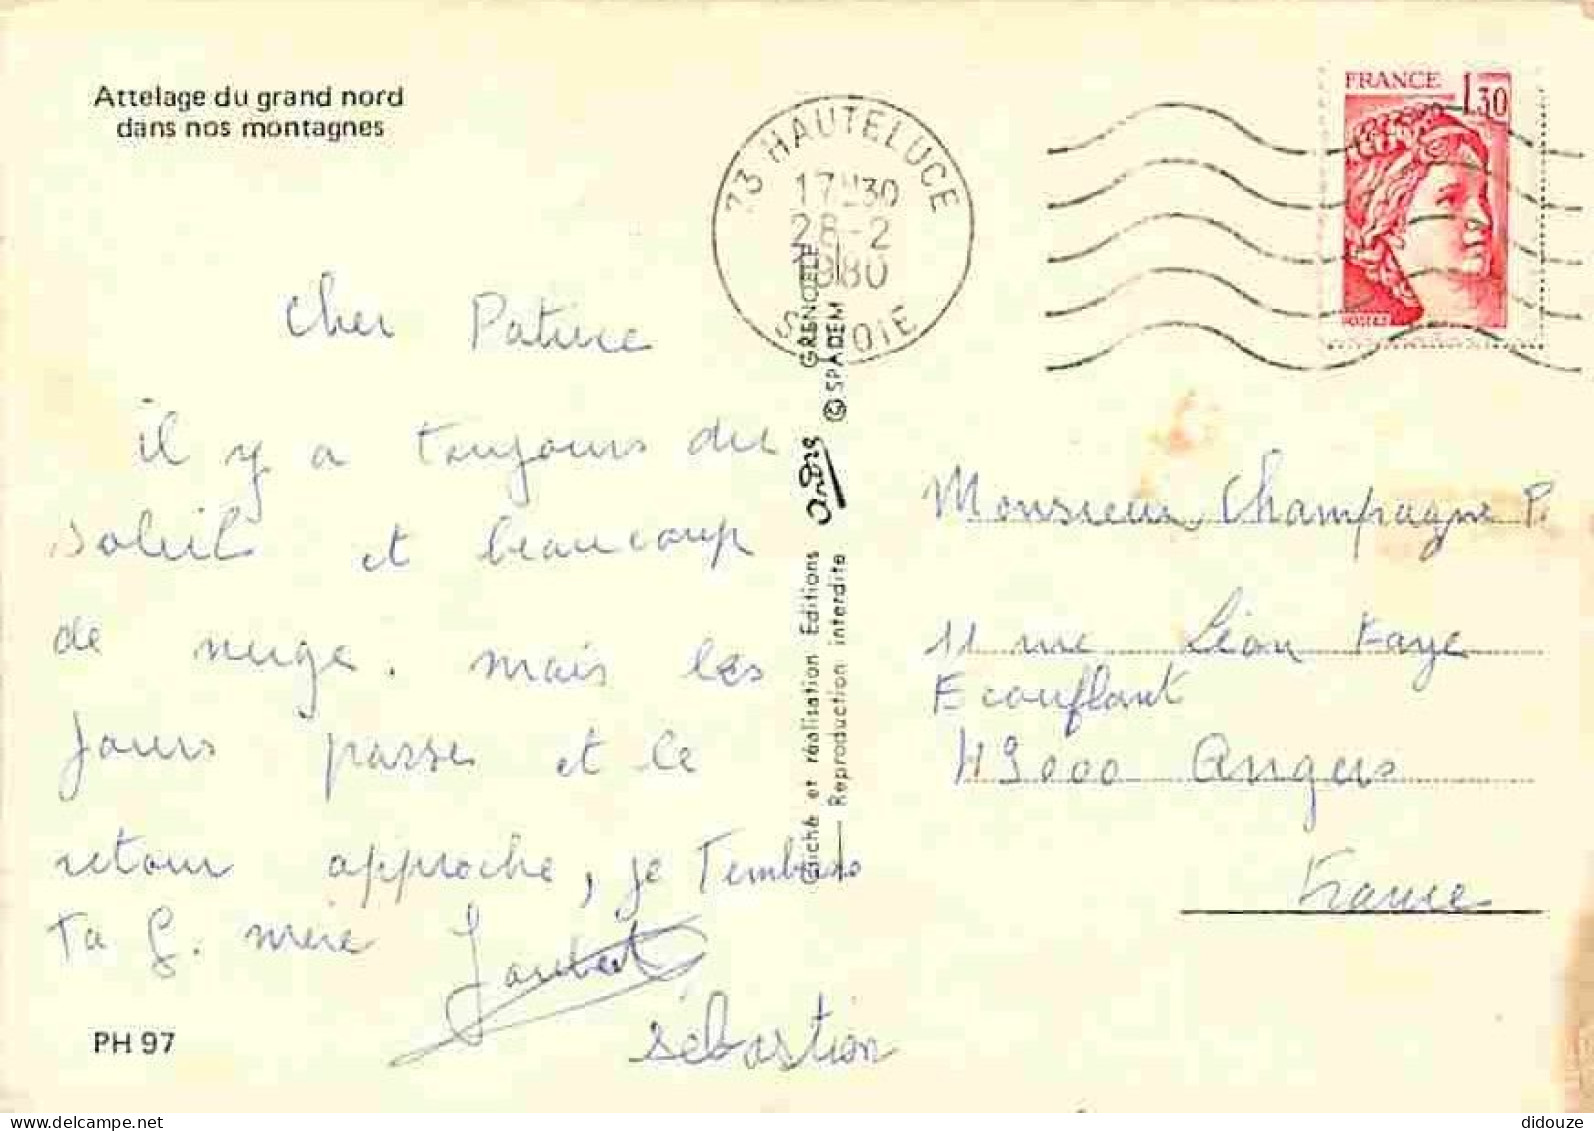 Attelage du grand nord
dans nos montagnes
73 HAUTELUCE
17H30
28-2
1980
SAVOIE
FRANCE 1,30
Cher
il y a toujours du
soleil et beaucoup
de neige. mais les
Jours passe et le
retour approche, je T'embrass
Ta G. mère Joubert
Sébastien
PH 97
Cliché et réalisation Editions André GRENOBLE
Reproduction interdite © SPADEM
Monsieur Champagne P.
11 rue Léon Faye
Ecouflant
49000 Angers
France
delcampe.net
didouze